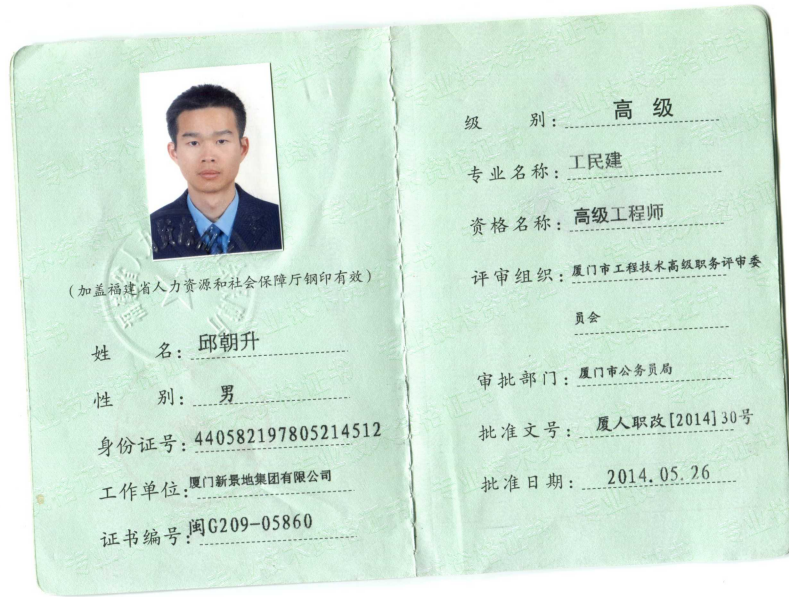 (加盖福建省人力资源和社会保障厅钢印有效)
姓 名:邱朝升
性 别:男
身份证号:440582197805214512
工作单位:厦门新景地集团有限公司
证书编号:闽G209-05860
级 别:高 级
专业名称:工民建
资格名称:高级工程师
评审组织:厦门市工程技术高级职务评审委
员会
审批部门:厦门市公务员局
批准文号:厦人职改[2014]30号
批准日期:2014.05.26